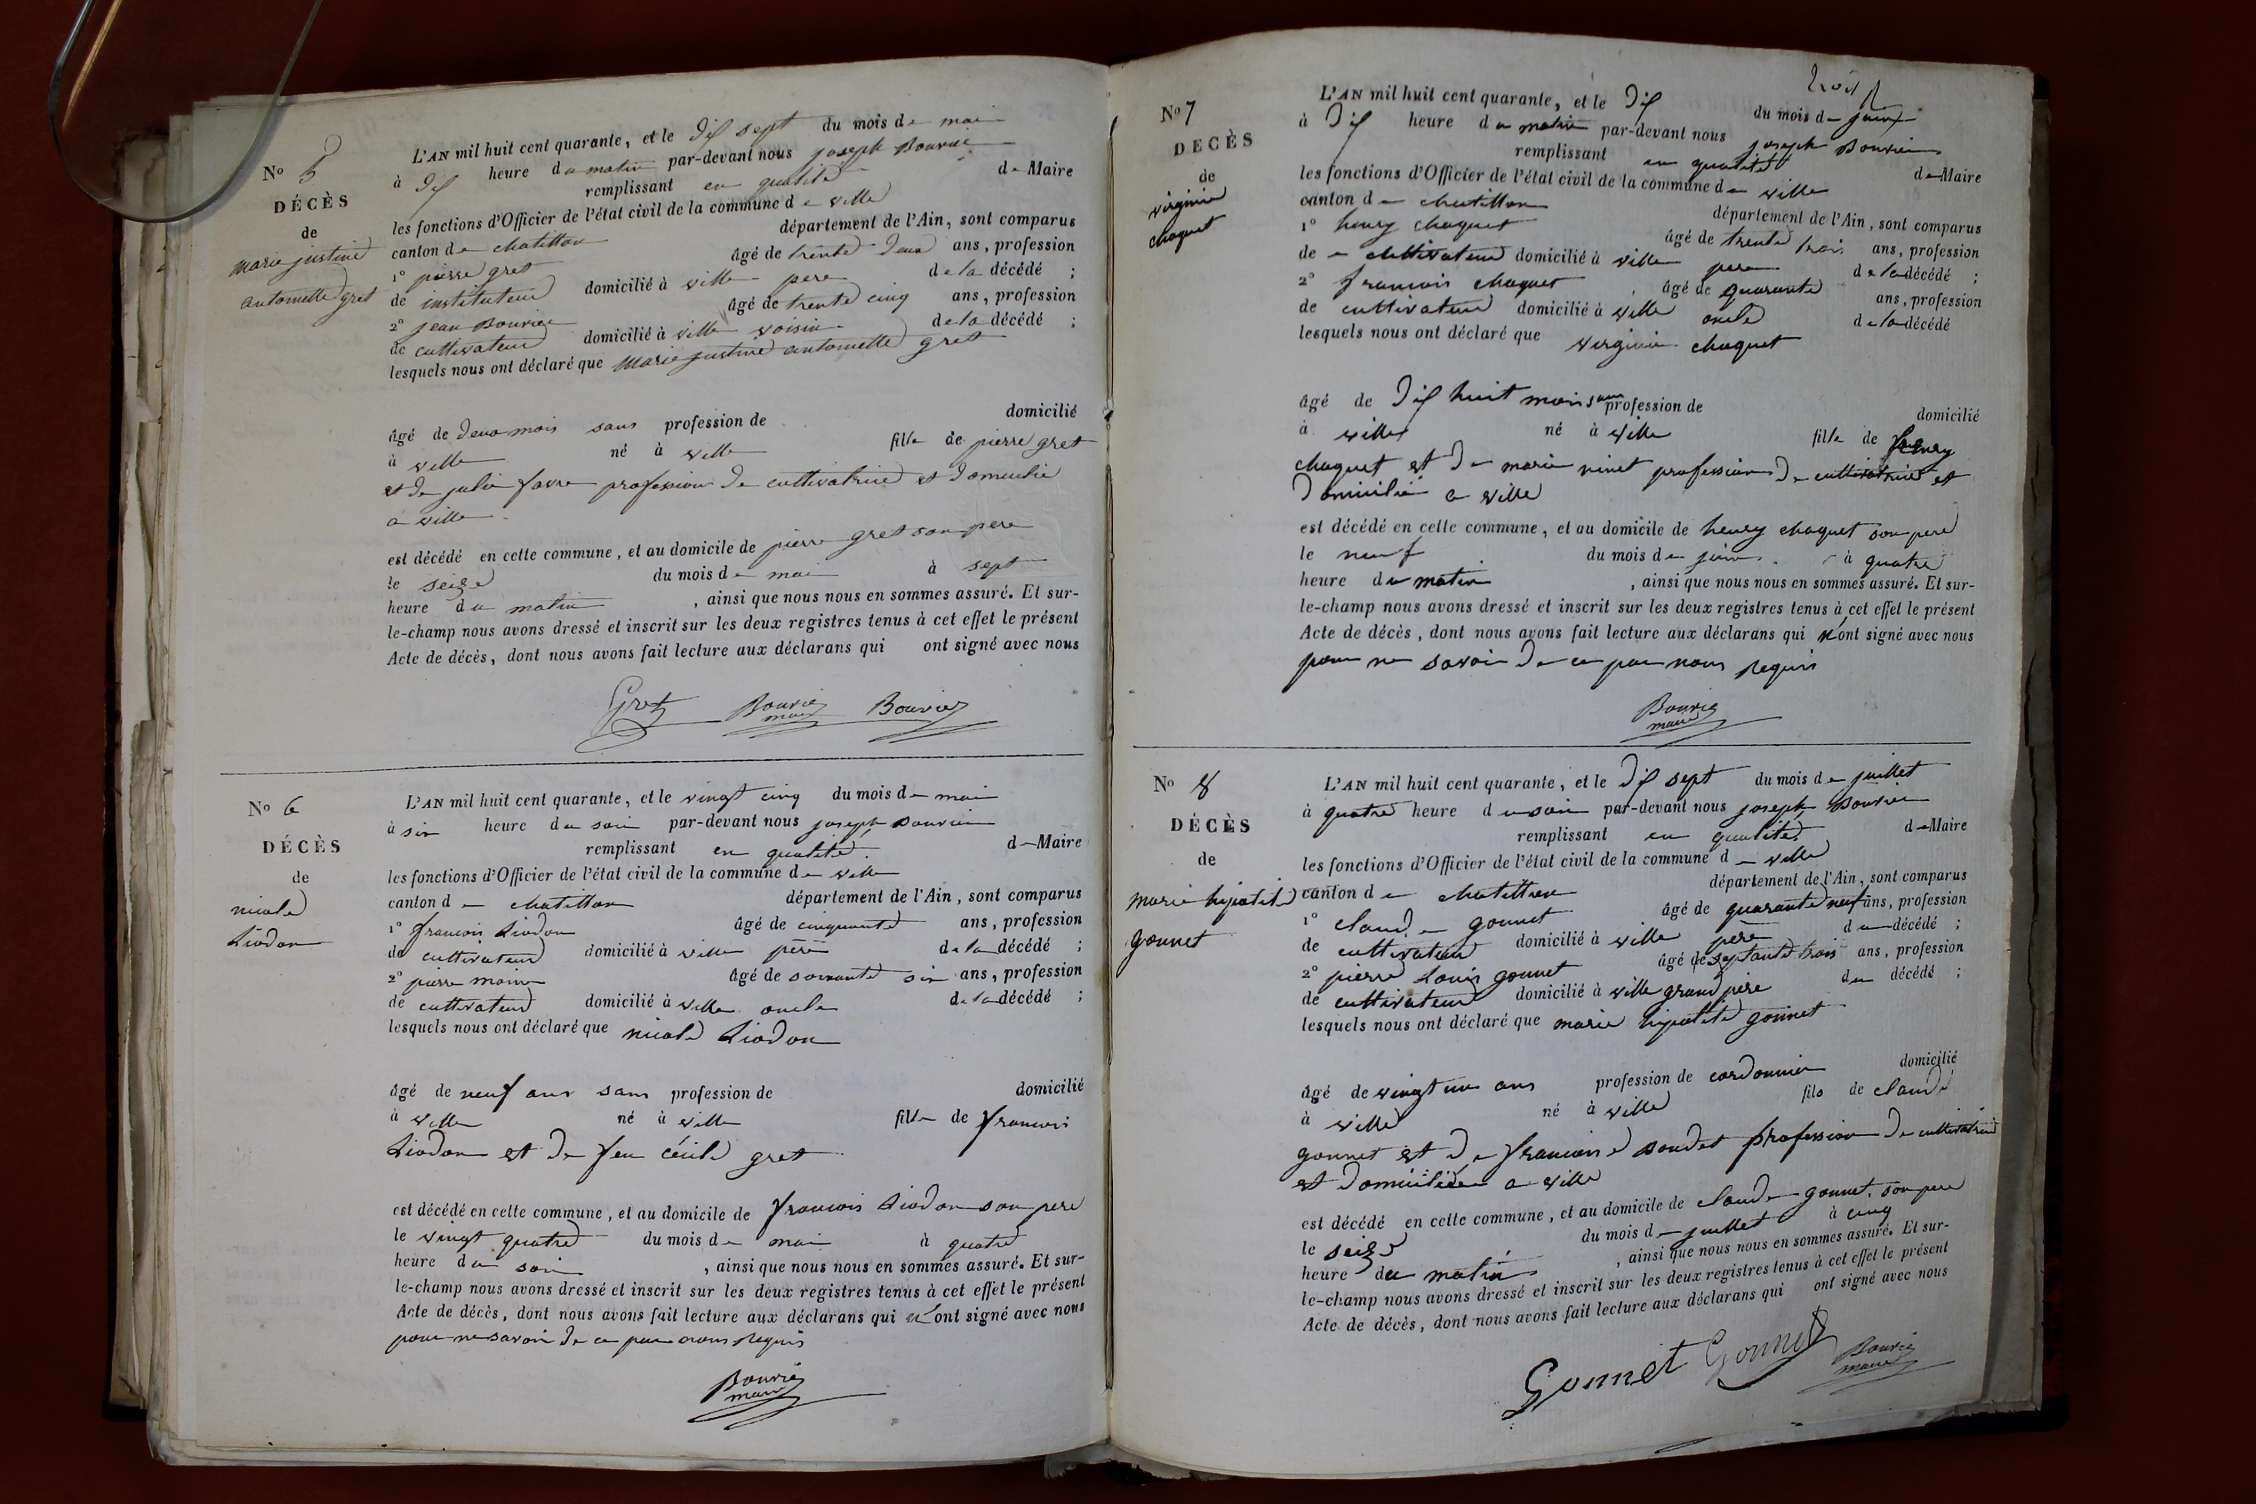 No 5
DÉCÈS
de
marie justine
antoinette gret
L'AN mil huit cent quarante, et le dix sept du mois de mai
à dix heure du matin par-devant nous joseph Bouvier
remplissant en qualité de Maire
les fonctions d'Officier de l'état civil de la commune de ville
canton de chatillon département de l'Ain, sont comparus
1° pierre gret âgé de trente deux ans, profession
de instituteur domicilié à ville pere de la décédé ;
2° jean Bouvier âgé de trente cinq ans, profession
de cultivateur domicilié à ville voisin de la décédé ;
lesquels nous ont déclaré que Marie justine antoinette gret
âgé de deux mois sans profession de domicilié
à ville né à ville fille de pierre gret
et de julie favre profession de cultivatrice et domicilié
a ville
est décédé en cette commune, et au domicile de pierre gret son pere
le seize du mois de mai à sept
heure du matin , ainsi que nous nous en sommes assuré. Et sur-
le-champ nous avons dressé et inscrit sur les deux registres tenus à cet effet le présent
Acte de décès, dont nous avons fait lecture aux déclarans qui ont signé avec nous
Gret Bouvier maire Bouvier
No 6
DÉCÈS
de
nicole
Liodon
L'AN mil huit cent quarante, et le vingt cinq du mois de mai
à six heure du soir par-devant nous joseph Bouvier
remplissant en qualité de Maire
les fonctions d'Officier de l'état civil de la commune de ville
canton de chatillon département de l'Ain, sont comparus
1° francois Liodon âgé de cinquante ans, profession
de cultivateur domicilié à ville père de la décédé ;
2° pierre âgé de soixante six ans, profession
de cultivateur domicilié à ville oncle de la décédé ;
lesquels nous ont déclaré que nicole Liodon
âgé de neuf ans sans profession de domicilié
à ville né à ville fille de francois
Liodon et de feu cécile gret
est décédé en cette commune, et au domicile de francois Liodon son pere
le vingt quatre du mois de mai à quatre
heure du soir , ainsi que nous nous en sommes assuré. Et sur-
le-champ nous avons dressé et inscrit sur les deux registres tenus à cet effet le présent
Acte de décès, dont nous avons fait lecture aux déclarans qui n'ont signé avec nous
pour ne savoir de ce par nous requis
Bouvier
maire
trois
No 7
DECÈS
de
virginie
choquet
L'AN mil huit cent quarante, et le dix du mois de juin
à dix heure du matin par-devant nous joseph Bouvier
remplissant en qualité de Maire
les fonctions d'Officier de l'état civil de la commune de ville
canton de chatillon département de l'Ain, sont comparus
1° henry choquet âgé de trente trois ans, profession
de cultivateur domicilié à ville pere de la décédé ;
2° francois choquet âgé de quarante ans, profession
de cultivateur domicilié à ville oncle de la décédé
lesquels nous ont déclaré que virginie choquet
âgé de dix huit mois sans profession de domicilié
à ville né à ville fille de henry
choquet et de marie vinet profession de cultivatrice et
domicilié a ville
est décédé en cette commune, et au domicile de henry choquet son pere
le neuf du mois de juin à quatre
heure du matin , ainsi que nous nous en sommes assuré. Et sur-
le-champ nous avons dressé et inscrit sur les deux registres tenus à cet effet le présent
Acte de décès, dont nous avons fait lecture aux déclarans qui n'ont signé avec nous
pour ne savoir de ce par nous requis
Bouvier
maire
No 8
DÉCÈS
de
marie hipolite
gonnet
L'AN mil huit cent quarante, et le dix sept du mois de juillet
à quatre heure du soir par-devant nous joseph Bouvier
remplissant en qualité de Maire
les fonctions d'Officier de l'état civil de la commune de ville
canton de chatillon département de l'Ain, sont comparus
1° claude gonnet âgé de quarante neuf ans, profession
de cultivateur domicilié à ville père du décédé ;
2° pierre Louis gonnet âgé de septante trois ans, profession
de cultivateur domicilié à ville grand père du décédé ;
lesquels nous ont déclaré que marie hipolite gonnet
âgé de vingt un ans profession de cordonnier domicilié
à ville né à ville fils de claude
gonnet et de francoise profession de cultivatrice
et domiciliée a ville
est décédé en cette commune, et au domicile de claude gonnet son pere
le seize du mois de juillet à cinq
heure du matin , ainsi que nous nous en sommes assuré. Et sur-
le-champ nous avons dressé et inscrit sur les deux registres tenus à cet effet le présent
Acte de décès, dont nous avons fait lecture aux déclarans qui ont signé avec nous
Gonnet Gonnet Bouvier
maire